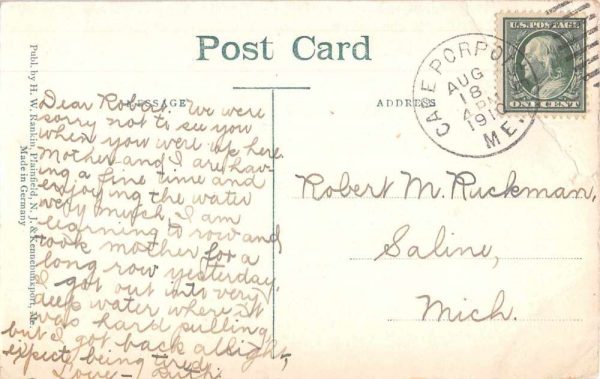 Post Card
MESSAGE
ADDRESS
Publ. by H. W. Rankin, Plainfield, N. J. & Kennebunkport, Me.
Made in Germany
Dear Robert. We were
sorry not to see you
when you were up here.
Mother and I are hav-
ing a fine time and
enjoying the water
very much. I am
learning to row and
took mother for a
long row yesterday.
I got out into very
deep water where it
was hard pulling
but I got back allright,
expect being tired.
Love - Ruth.
U.S. POSTAGE
ONE CENT
CAPE PORPOISE
AUG
18
4 PM
1910
ME.
Robert M. Ruckman,
Saline,
Mich.